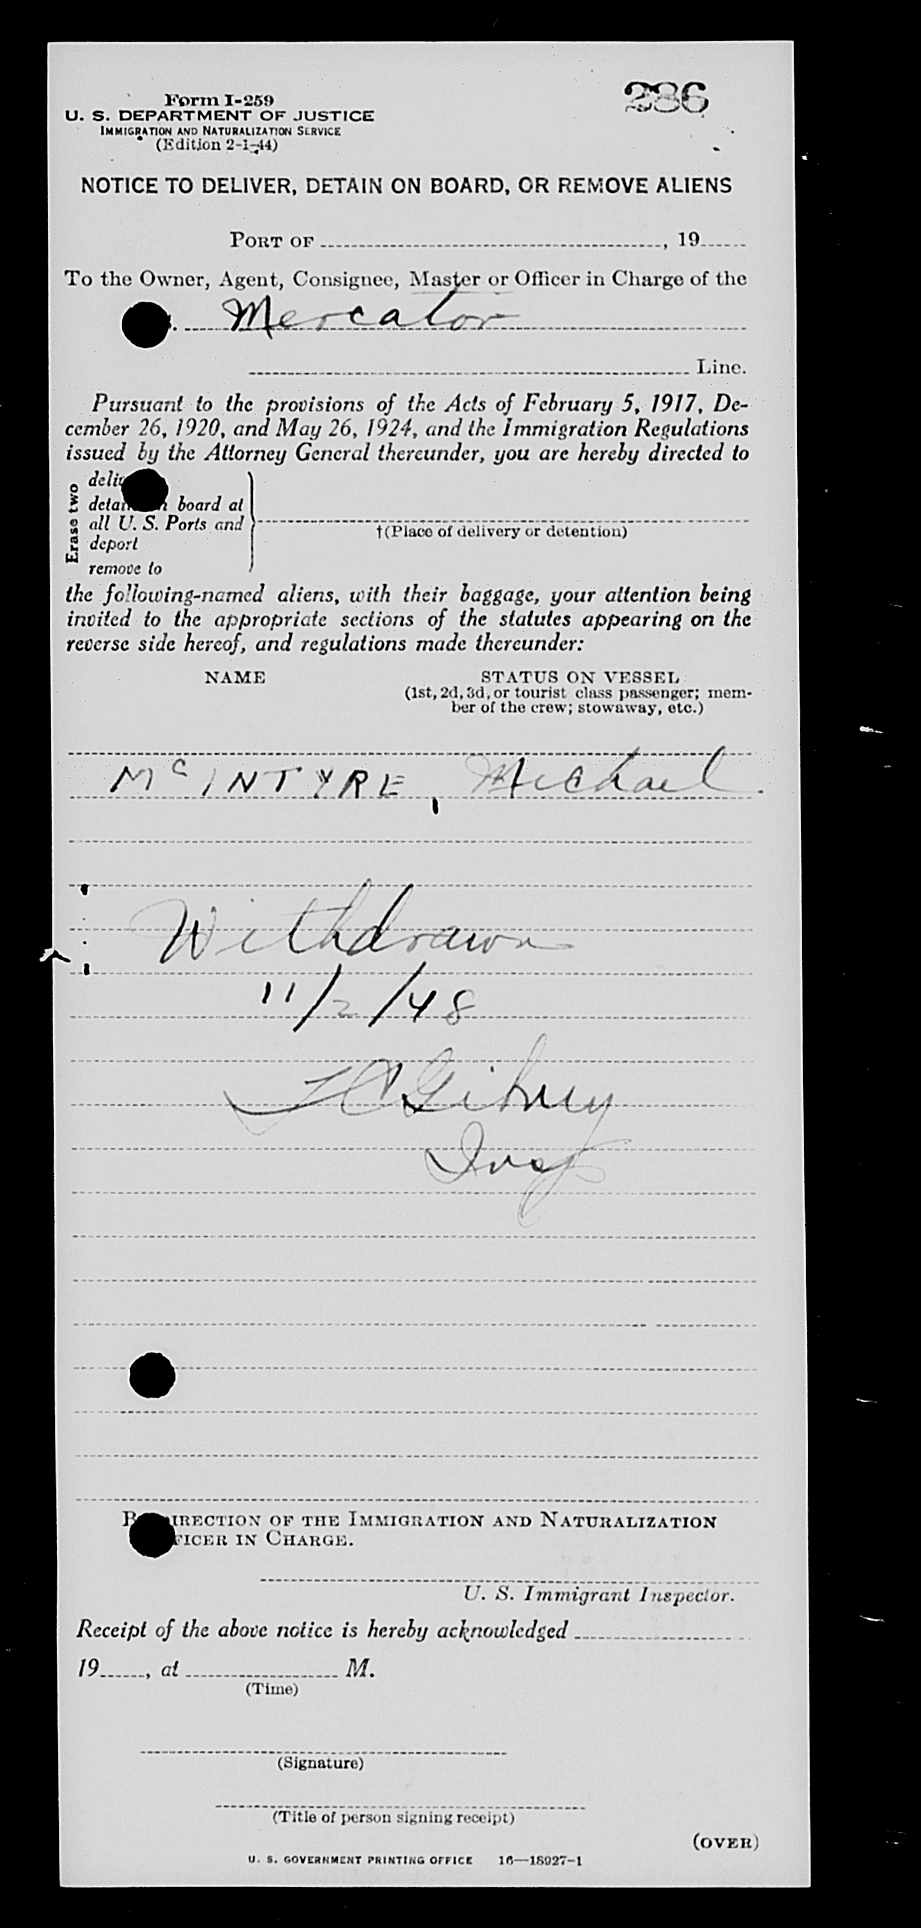 286
Form I-259
U. S. DEPARTMENT OF JUSTICE
IMMIGRATION AND NATURALIZATION SERVICE
(Edition 2-1-44)
NOTICE TO DELIVER, DETAIN ON BOARD, OR REMOVE ALIENS
PORT OF , 19
To the Owner, Agent, Consignee, Master or Officer in Charge of the
Mercator
Line.
Pursuant to the provisions of the Acts of February 5, 1917, De-
cember 26, 1920, and May 26, 1924, and the Immigration Regulations
issued by the Attorney General thereunder, you are hereby directed to
Erase two
board at
all U. S. Ports and
deport
remove to
†(Place of delivery or detention)
the following-named aliens, with their baggage, your attention being
invited to the appropriate sections of the statutes appearing on the
reverse side hereof, and regulations made thereunder:
NAME STATUS ON VESSEL
(1st, 2d, 3d, or tourist class passenger; mem-
ber of the crew; stowaway, etc.)
McINTYRE, Michael
Withdrawn
11/2/48
Insp
OF THE IMMIGRATION AND NATURALIZATION
IN CHARGE.
U. S. Immigrant Inspector.
Receipt of the above notice is hereby acknowledged
19 , at M.
(Time)
(Signature)
(Title of person signing receipt)
(OVER)
U. S. GOVERNMENT PRINTING OFFICE 16—18027-1